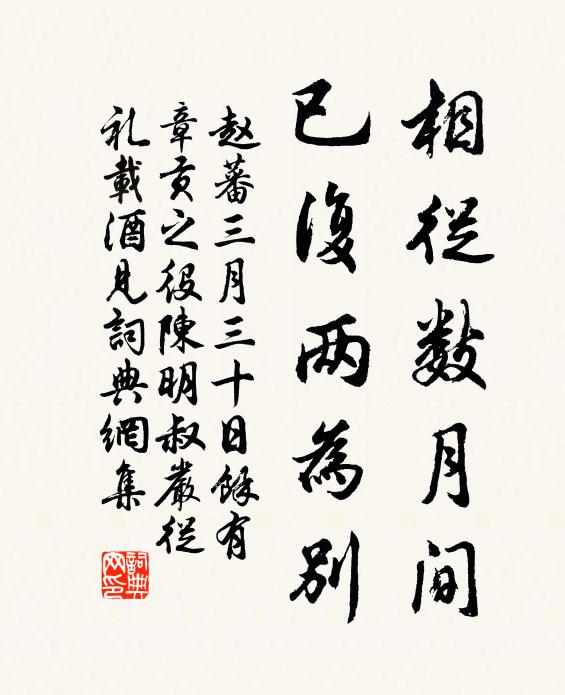 相從数月间
已復两為別
赵蕃三月三十日餘有
章贡之役陳明叔嚴從
礼載酒見詞典網集
詞典网印